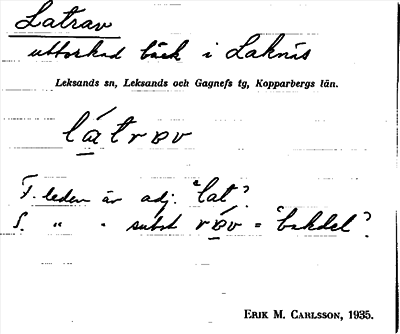 Latrav
uttorkad bäck i Laknäs
Leksands sn, Leksands och Gagnefs tg, Kopparbergs län.
látrɒv
F. leden är adj. "lat"?
S. " " subst rɒ́v = "bakdel"?
ERIK M. CARLSSON, 1935.